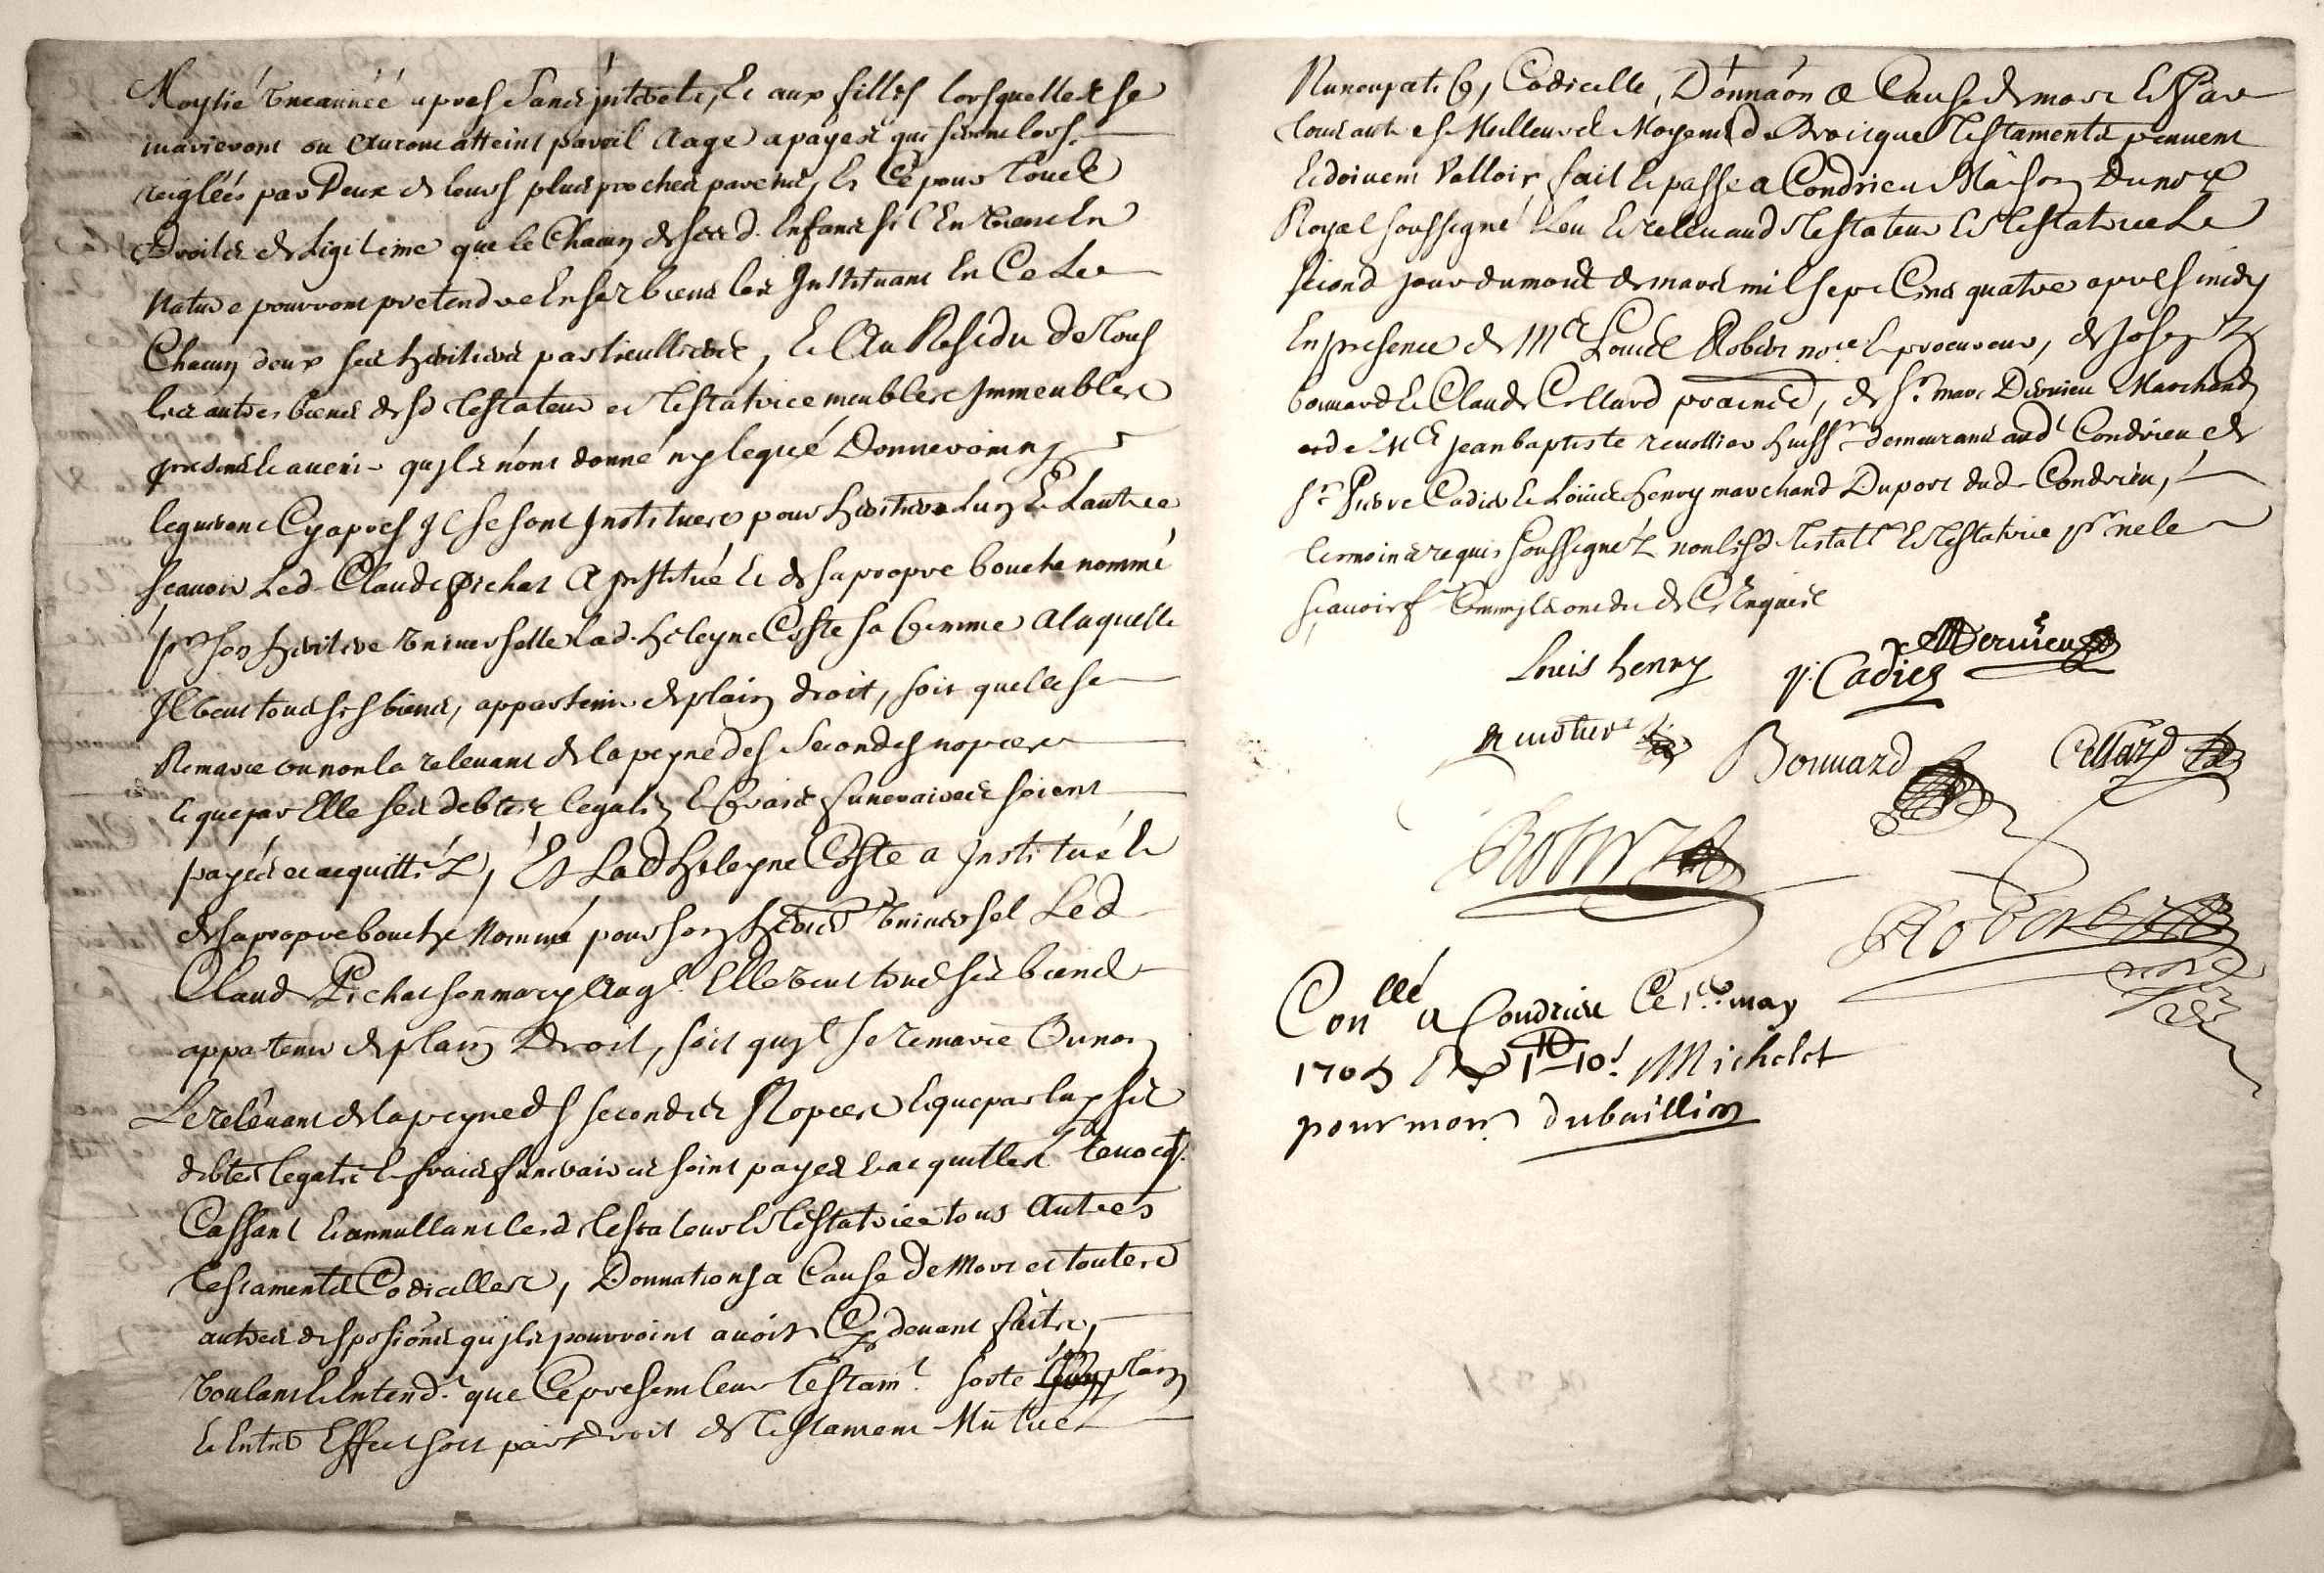 Moytié une année apres sans interetz, et aux filles lorsquelles se
marieront ou auront atteint pareil aage a payer qui seront lors
reiglées par Deux de leurs plus proches parents, et Ce pour Tous
Droits de Ligitime que le Chacun de sesd. Enfans sil En vient En
Nature pourront pretendre En ses biens les Instituant En Ce Les
Chacun deux ses heritiers particulliers, Et Au Residu de Tous
les autres biens desd Testateur et Testatrice meubles Immeubles
presents et avenir quyls nont donné ny legué Donneront ny
legueront Cyapres Il se sont Instituers pour heritiers Lun Et Lautre
scavoir Led. Claude Pichat A Institué Et de sa propre bouche nommé
pr son heritiere universelle Lad. heleyne Coste sa femme A laquelle
Il veut tous ses biens, appartenir de plain droit, soit quelle se
Remarie ou non la relevant de la peyne des Secondes nopces
Et que par Elle ses debtes legats Et frais funeraires soient
payés et acquittéz, Et Lad heleyne Coste a Institué Et
de sa propre bouche Nommé pour son heritier universel Led
Claude Pichat son mary Auql Elle veut tous ses biens
appartenir de plain Droit, soit quyl se remarie Ou non
Le relevant de la peyne des secondes Nopces Et que par luy ses
debtes legats Et frais funeraires soint payes Et acquittes
Cassant Et annullant lesd Testateur Et Testatrice tous Autres
Testaments Codicilles, Donnations a Cause de Mort et toutes
autres disposions quyls pourroint avoir Cy devant faites,
Voulant Et Entend.t que Ce present leur Testam.t sorte son plain
Et Entier Effect soit par droit de Testament Mutuel
Nuncupatif, Codicille, Donnaon A Cause de mort Et Par
tous autres Meilleurs Moyens de Droit que Testaments peuvent
Et doivent Valloir fait Et passé a Condrieu Maison Du nore
Royal soussigné Leu Et releu ausd Testateur Et Testatrice Le
second jour du mois de mars mil sept Cens quatre apres midy
En presence de Me Louis Robert nore Et procureur, de Joseph
bonnard Et Claude Cellard praencs, de sr. marc Dervieu Marchand
et de Me jean baptiste revollier huissr demeurants aud Condrieu Et
sr. Pierre Cadier Et Louis henry marchand Du port dud. Condrieu,
tesmoins requis soussignéz non lesd. Testatr Et Testatrice pr ne le
scavoir fe Comme yls ont dit de Ce Enquis
Louis henry
p. Cadier
Dervieu
Revollier
Bonnard
Cellard
Robert
Robert
nore
Conllé A Condrieu Ce 1er may
1704 10s Michelet
pour monr. dubaillion